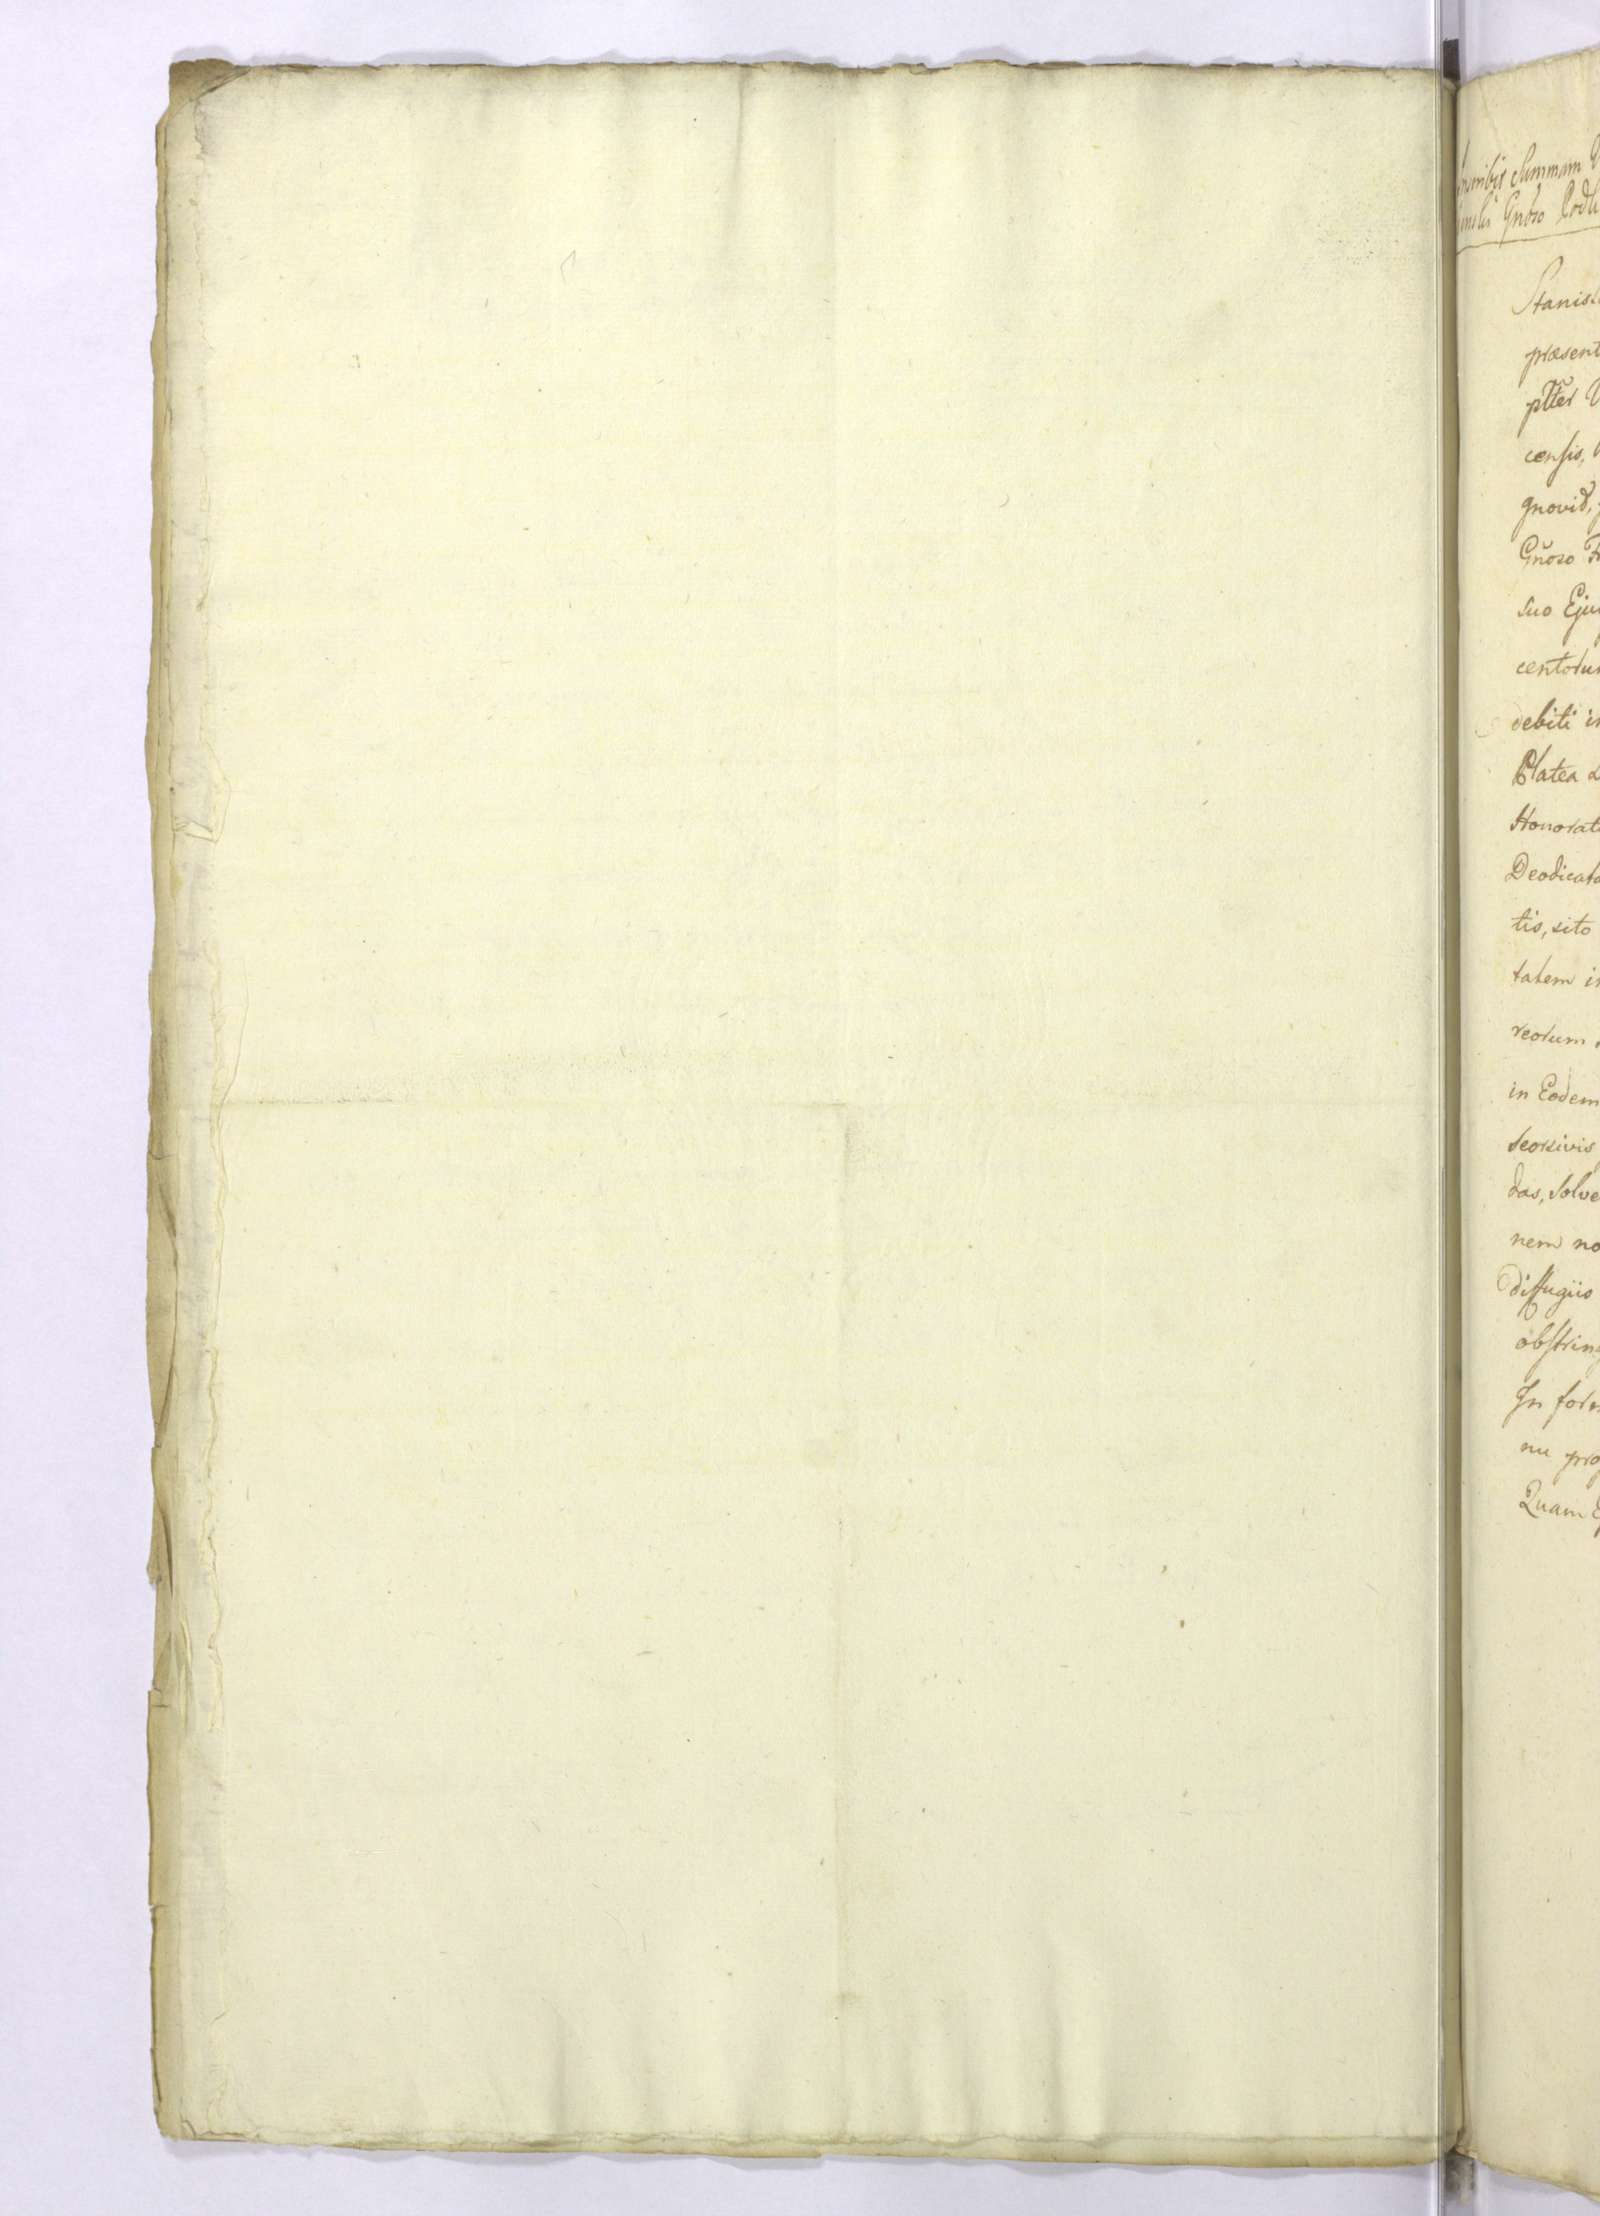 Summam
Gnoso
Stanisl
præsent
pltēr
censis,
gnovit,
Gnoso
suo Eju
centoru
debiti in
Platea
Honorat
Deodicat
tis, sito
talem in
reorum
in Eodem
seorsivis
das, solve
nem no
diffugiis
obstring
In for
nu pro
Quam